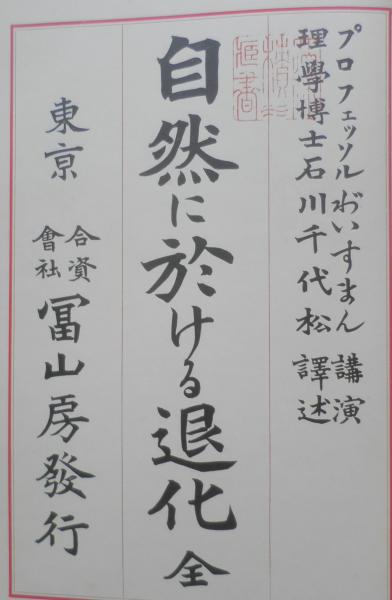 プロフェッソルゐいすまん講演
理學博士石川千代松譯述
自然に於ける退化全
東亰
合資
會社
冨山房發行